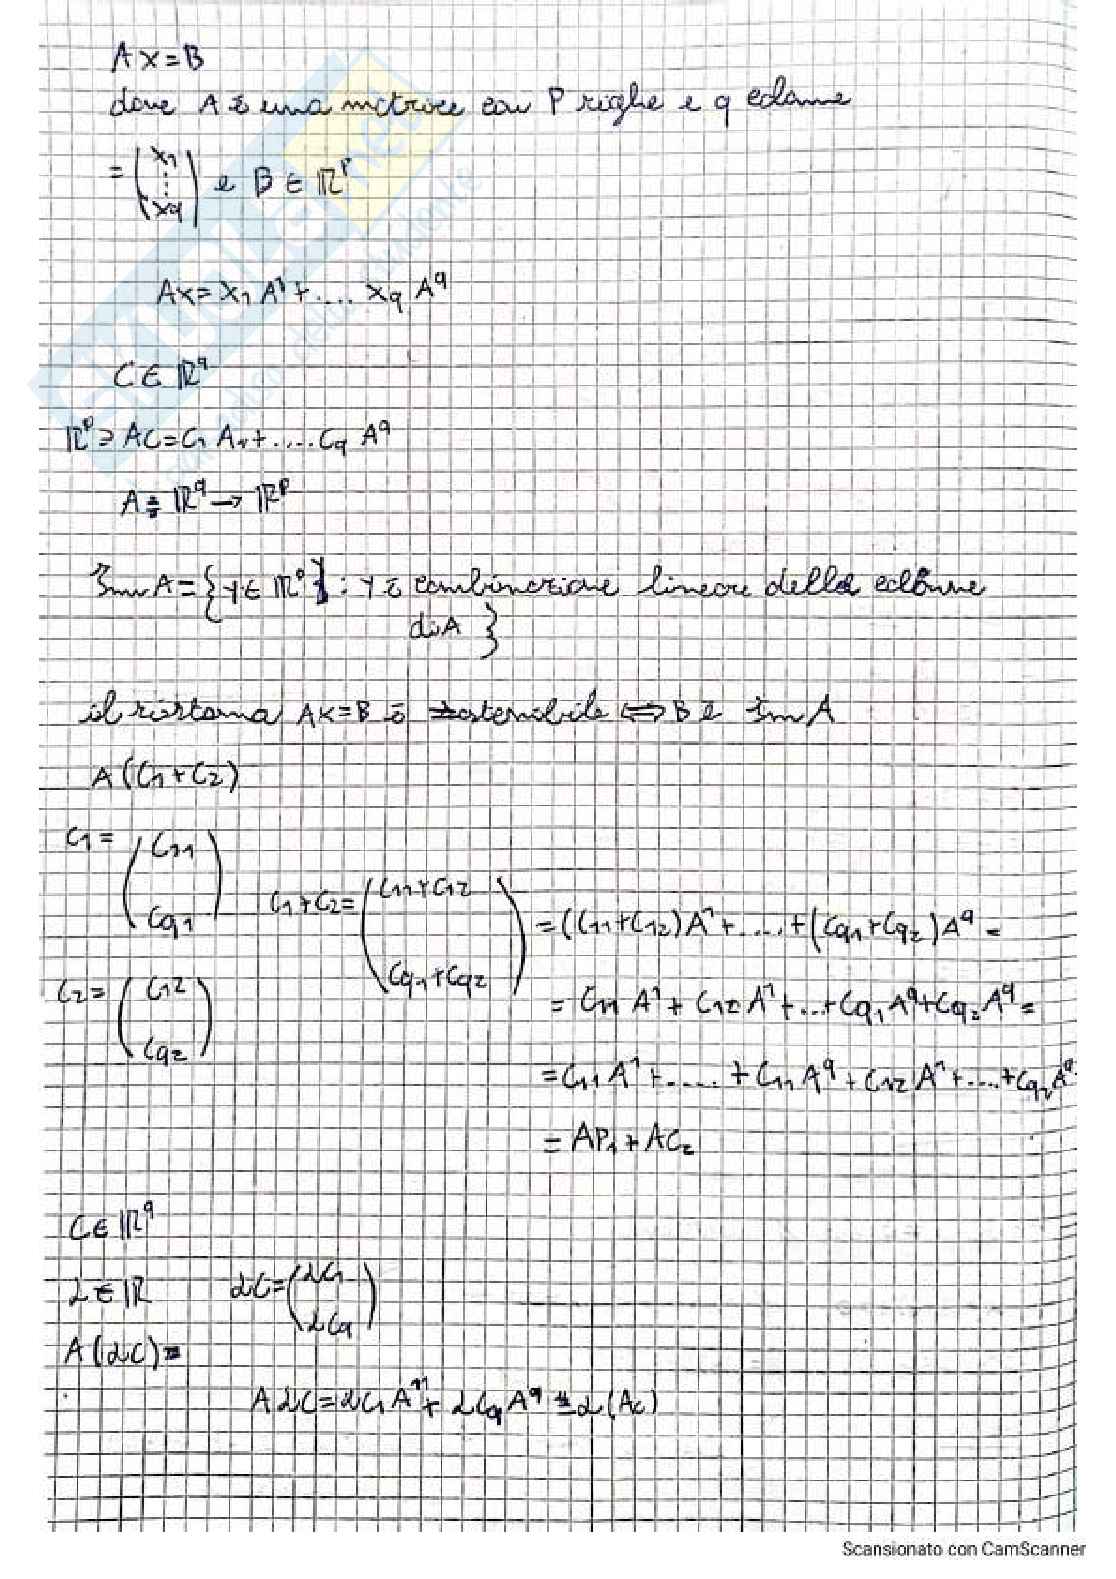 AX=B
dove A è una matrice con P righe e q colonne
= (x1 ⋮ xq) e B ∈ ℝᵖ
AX = x1 A¹ + .... xq A^q
C ∈ ℝ^q
ℝᵖ ∋ AC = C1 A1 + ..... Cq A^q
A: ℝ^q → ℝᵖ
Imm A = { Y ∈ ℝᵖ } : Y è combinazione lineare delle colonne
di A }
il sistema AX=B è ⇔ B è Im A
A (C1 + C2)
C1 = (C11 Cq1)
C1 + C2 = (C11 + C12 Cq1 + Cq2) = ((C11 + C12) A¹ + ..... + (Cq1 + Cq2) A^q =
C2 = (C12 Cq2)
= C11 A¹ + C12 A¹ + ... + Cq1 A^q + Cq2 A^q =
= C11 A¹ + ...... + C11 A^q + C12 A¹ + .... + Cq2 A^q
= AP1 + AC2
C ∈ ℝ^q
α ∈ ℝ αC = (αC1 αCq)
A (αC) =
A αC = αC1 A¹ + αCq A^q = α (Ac)
Scansionato con CamScanner